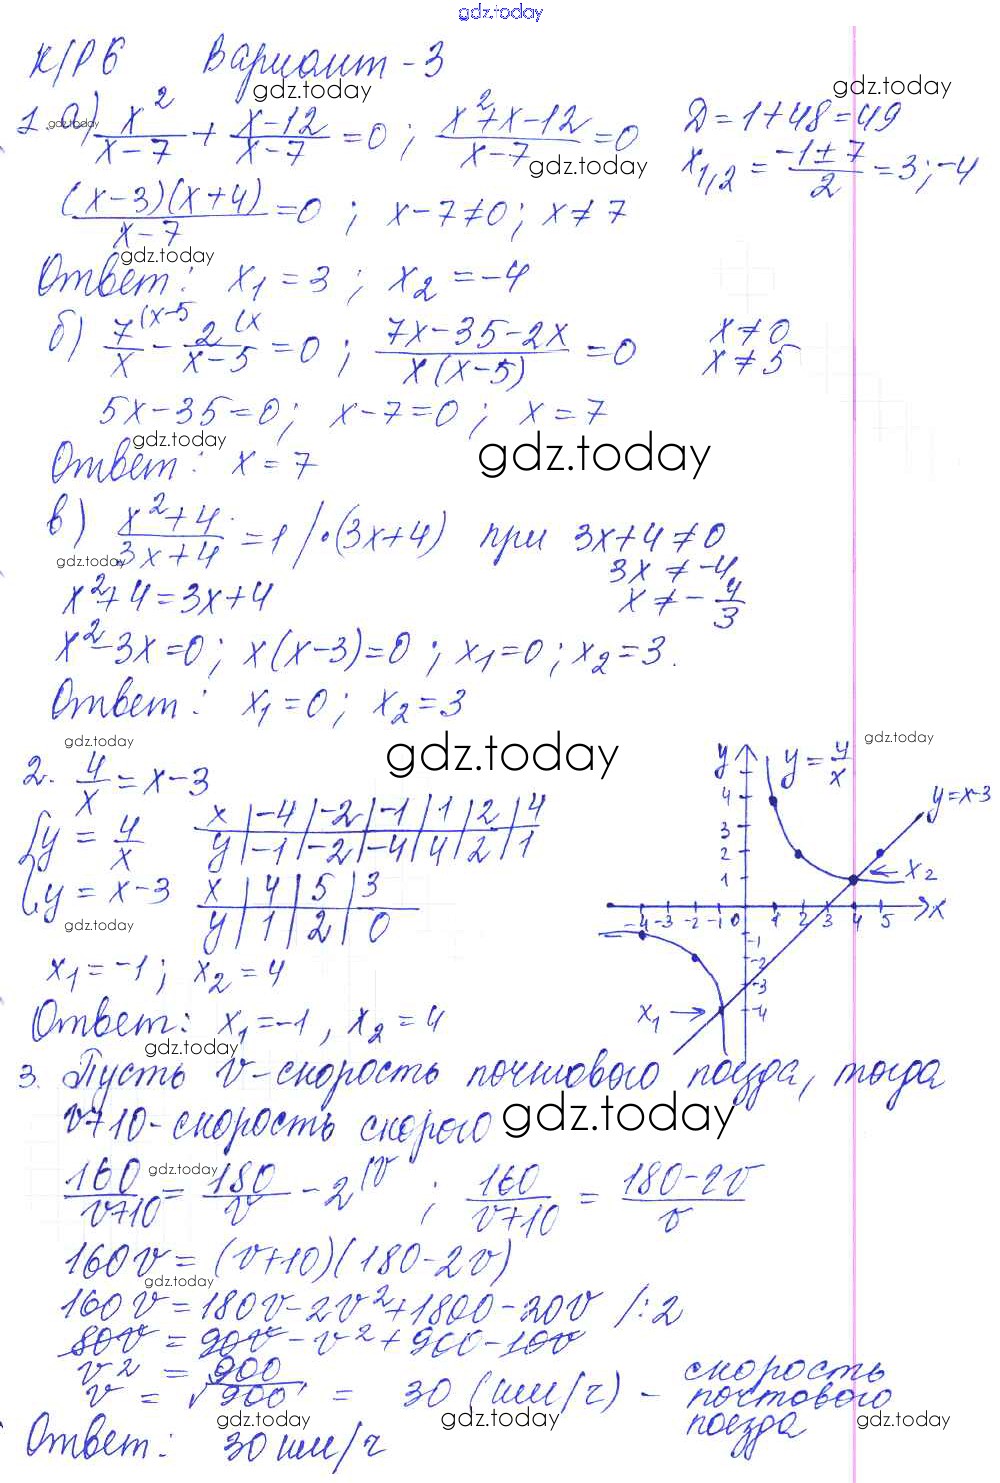 gdz.today
К/Р 6 Вариант - 3
gdz.today gdz.today
1. а) x²/(x-7) + (x-12)/(x-7) = 0 ; (x²+x-12)/(x-7) = 0 D = 1+48=49
gdz.today
gdz.today x₁,₂ = (-1±7)/2 = 3; -4
((x-3)(x+4))/(x-7) = 0 ; x-7≠0; x≠7
gdz.today
Ответ: x₁ = 3 ; x₂ = -4
б) 7/x (x-5 - 2/(x-5) (x = 0 ; (7x-35-2x)/(x(x-5)) = 0 x≠0
x≠5
5x-35=0; x-7=0; x=7
gdz.today gdz.today
Ответ: x = 7
в) (x²+4)/(3x+4) = 1 /·(3x+4) при 3x+4≠0
gdz.today 3x ≠ -4
x²+4 = 3x+4 x ≠ -4/3
x²-3x=0; x(x-3)=0; x₁=0; x₂=3.
Ответ: x₁=0; x₂=3
gdz.today gdz.today gdz.today
2. 4/x = x-3
{y = 4/x
x | -4 | -2 | -1 | 1 | 2 | 4
y | -1 | -2 | -4 | 4 | 2 | 1
y = x-3
x | 4 | 5 | 3
y | 1 | 2 | 0
gdz.today
x₁=-1; x₂=4
y y=4/x y=x-3
4
3
2
1 x₂
-4 -3 -2 -1 0 1 2 3 4 5 x
-1
-2
-3
x₁ -4
Ответ: x₁=-1, x₂=4
gdz.today
3. Пусть v-скорость почтового поезда, тогда
v+10-скорость скорого gdz.today
160/(v+10) = 180/v - 2 (v ; 160/(v+10) = (180-2v)/v
gdz.today
160v = (v+10)(180-2v)
gdz.today
160v = 180v-2v²+1800-20v /:2
80v = 90v-v²+900-10v
v² = 900
v = √900 = 30 (км/ч) - скорость почтового поезда
gdz.today gdz.today gdz.today
Ответ: 30 км/ч